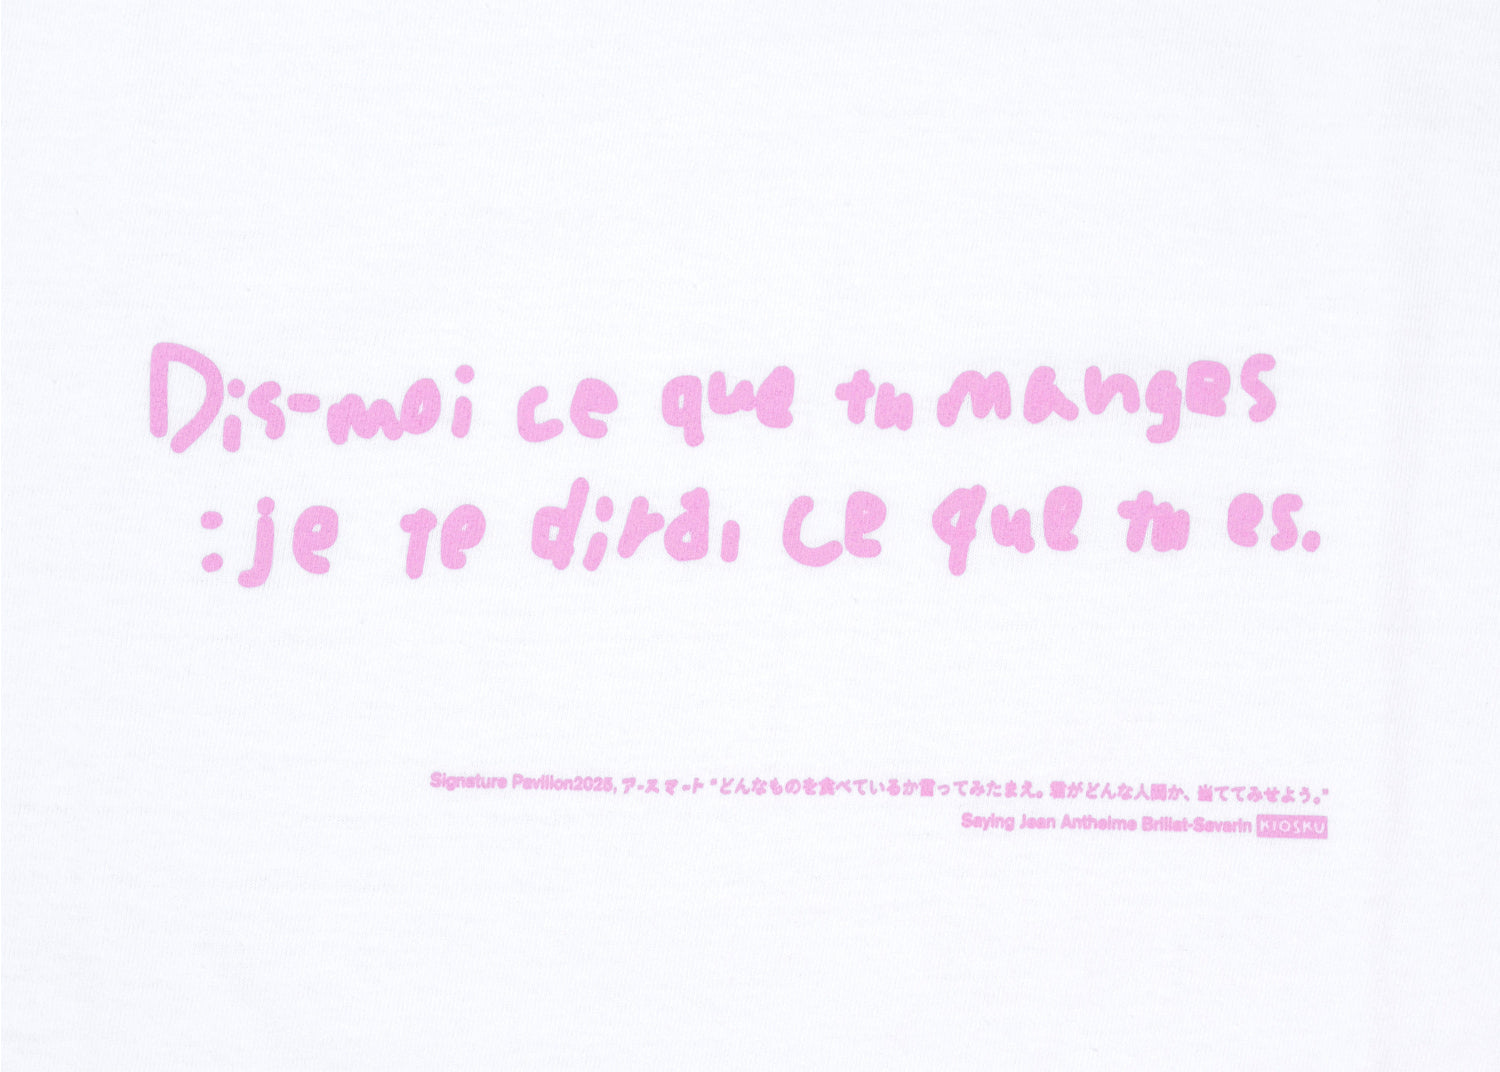 Dis-moi ce que tu manges
: je te dirai ce que tu es.
Signature Pavilion2025, アースマート “どんなものを食べているか言ってみたまえ。君がどんな人間か、当ててみせよう。”
Saying Jean Anthelme Brillat-Savarin KIOSKU